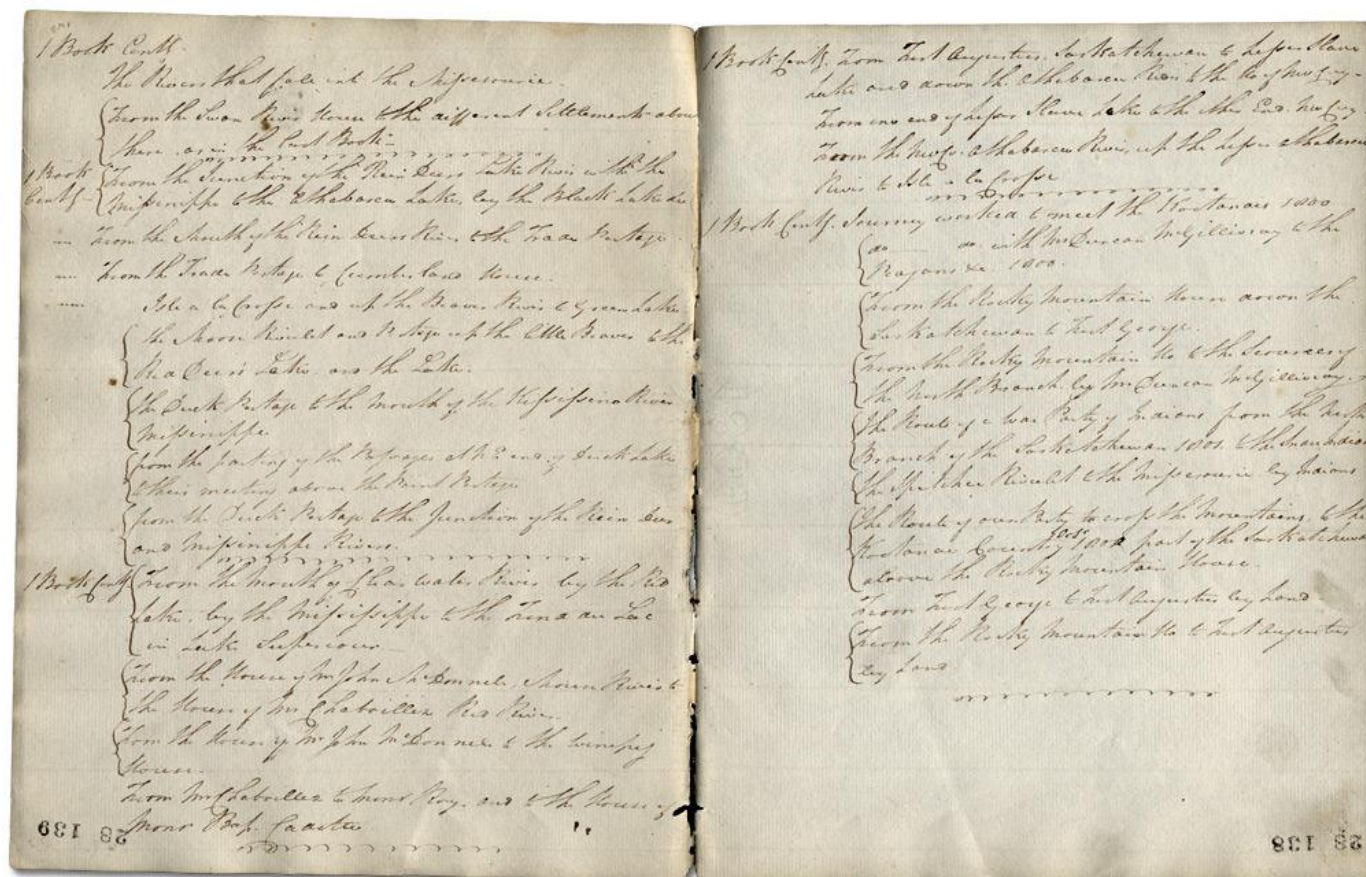 1 Book Contg.
The Rivers that fall into the Missesourie
From the Swan River House to the different Settlements above
there as in the Last Book
1 Book From the Junction of the Rein Deers Lake River with the
Contg. Missinippe to the Athabasca Lake, by the Black Lake &c
From the Mouth of the Rein Deers River to the Trade Portage
From the Trade Portage to Cumberland House.
Isle a la Crosse and up the Beaver River to Green Lake
the Moose Rivulet and Portage up the little Beaver to the
Red Deers Lake and the Lake.
the Duck Portage to the Mouth of the Kississing River
Missinippe
from the parting of the Passages at the end of Duck Lake
to their meeting above the Portage
from the Duck Portage to the Junction of the Rein Deer
and Missinippe Rivers.
1 Book Contg. From the Mouth of Clear Water River by the Red
Lake, by the Mississippe to the Fond du Lac
in Lake Superiour
From the House of Mr John McDonnell, Mouse River to
the House of Mr Chaboillez Red River.
From the House of Mr John McDonnell to the Winepeg
House.
From Mr Chaboillez to Monsr Roy, and to the House of
Monsr Bap. Cadotte
28 139
1 Book Contg. From Fort Augustus, Saskatchewan to Lesser Slave
Lake and down the Athabasca River to the Ho of
From one end of Lesser Slave Lake to the other End.
From the Athabasca River, up the Lesser Athabasca
River to Isle a la Crosse
1 Book Contg. Journey worked to meet the Kootanaes 1800
do do with Mr Duncan McGillivray to the
Pagans &c. 1800.
From the Rocky Mountain House down the
Saskatchewan to Fort George.
From the Rocky Mountain Ho to the Sources of
the North Branch by Mr Duncan McGillivray
The Route of a War Party of Indians from the North
Branch of the Saskatchewan 1801 to the Snake Indians
the Rivulet to the Missesourie by Indians
The Route of our Party to cross the Mountains, to the
Kootanae Country part of the Saskatchewan
above the Rocky Mountain House.
From Fort George to Fort Augustus by Land
From the Rocky Mountain Ho to Fort Augustus
by Land
28 138